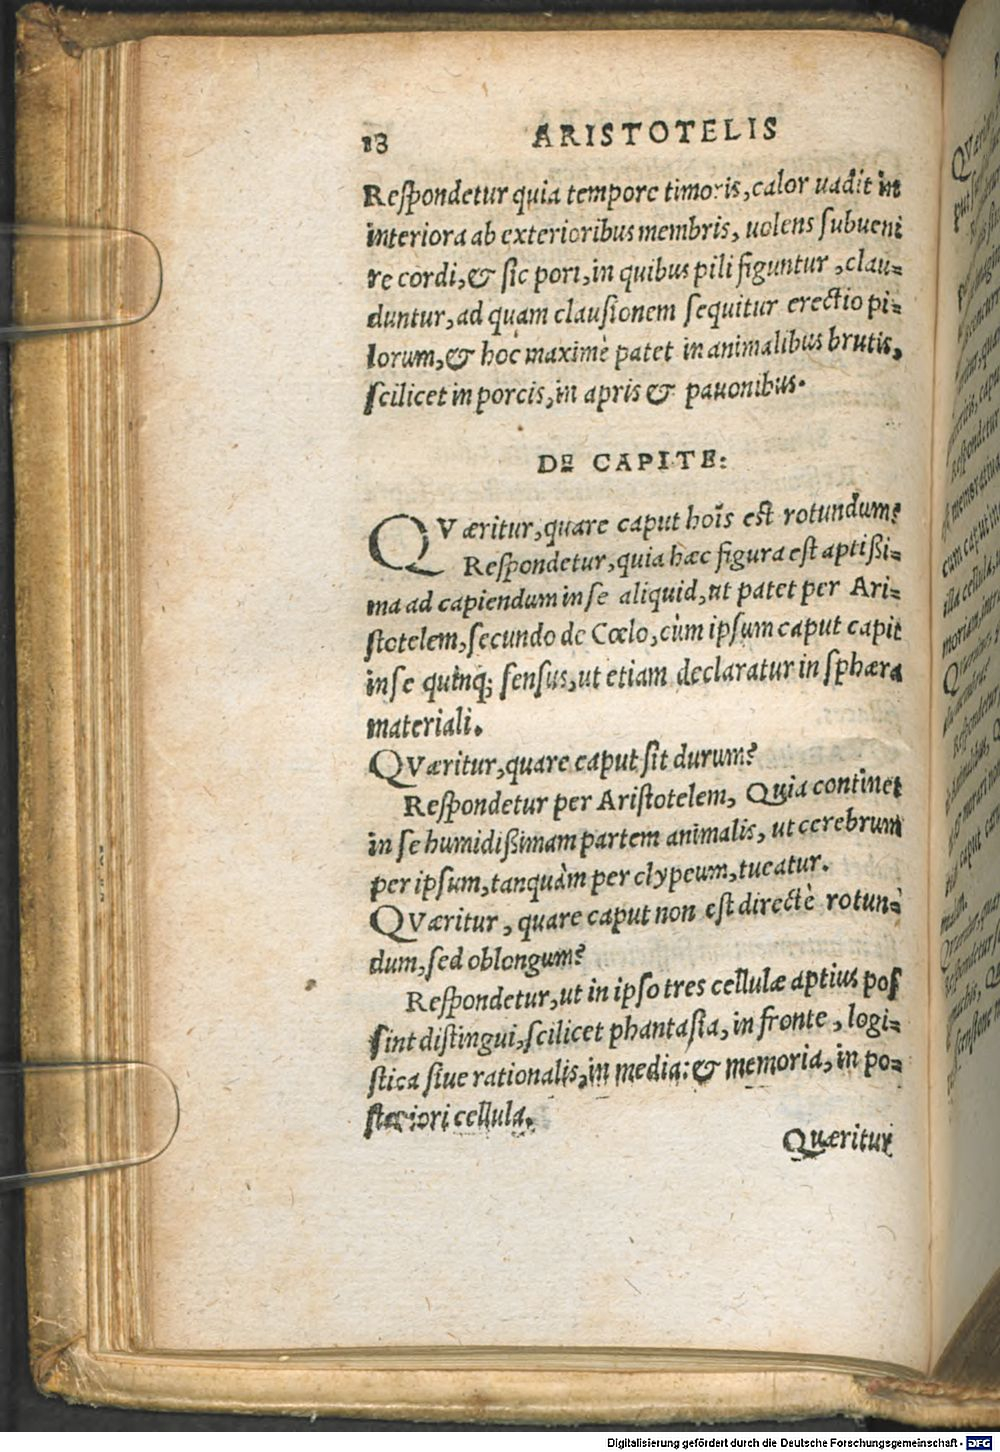 18 ARISTOTELIS
Respondetur quia tempore timoris, calor uadit in
interiora ab exterioribus membris, uolens subueni
re cordi, & sic pori, in quibus pili figuntur, clau-
duntur, ad quam clausionem sequitur erectio pi-
lorum, & hoc maximè patet in animalibus brutis,
scilicet in porcis, in apris & pauonibus.
DE CAPITE:
QVæritur, quare caput hoĩs est rotundum?
Respondetur, quia hæc figura est aptißi-
ma ad capiendum in se aliquid, ut patet per Ari-
stotelem, secundo de Cœlo, cùm ipsum caput capit
in se quinq; sensus, ut etiam declaratur in sphæra
materiali.
QVæritur, quare caput sit durum?
Respondetur per Aristotelem, Quia continet
in se humidißimam partem animalis, ut cerebrum
per ipsum, tanquàm per clypeum, tueatur.
QVæritur, quare caput non est directè rotun-
dum, sed oblongum?
Respondetur, ut in ipso tres cellulæ aptius pos
sint distingui, scilicet phantasia, in fronte, logi-
stica siue rationalis, in media: & memoria, in po-
steriori cellula.
Quæritur
Digitalisierung gefördert durch die Deutsche Forschungsgemeinschaft - DFG